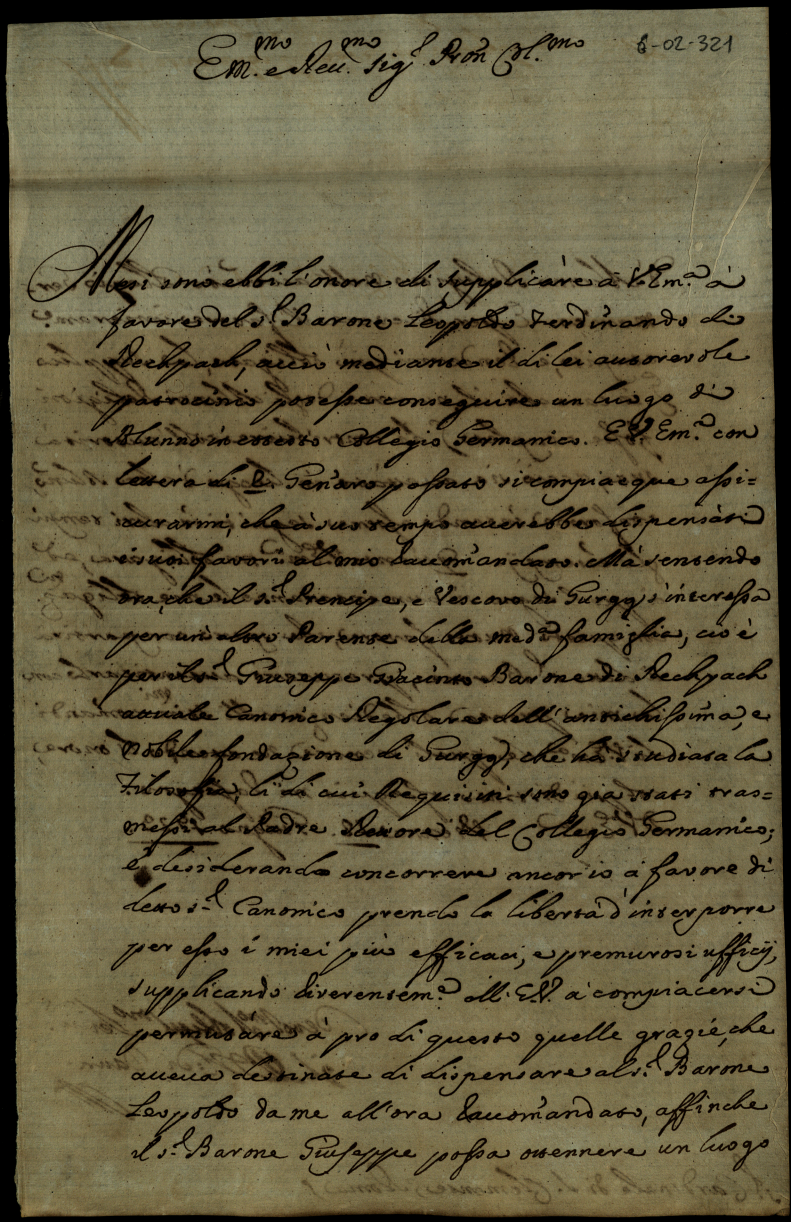 6-02-321
Em.mo e Reu.mo Sig.r Pron Col.mo
Mesi sono ebbi l'onore di supplicàre à V. Em.a à
favore del s.r Barone Leopoldo Ferdinando di
Rechpach, acciò mediante il di lei autorevole
patrocinio potesse conseguire un luogo di
Alunno in cotesto Collegio Germanico. E V. Em.a con
lettera di Genaro passato si compiacque assi=
curarmi, che à suo tempo auerebbe dispensàti
i suoi favori al mio Raccomandato. Mà sentendo
ora, che il s.r Prencipe, e Vescovo di Gurgg s'interessa
per un'altro Parente della med.a famiglia, cio è
per il s.r Giuseppe Giacinto Barone di Rechpach
attuale Canonico Regolare dell'antichissima, e
nobile fondazione di Gurgg, che hà studiata la
Filosofia, li di cui Requisiti sono già stati tras=
messi al Padre Rettore del Collegio Germanico;
e desiderando concorrere ancor io à favore di
detto s.r Canonico prendo la libertà d'interporre
per esso i miei più efficaci, e premurosi ufficij,
supplicando riverentem.e all' E.V. à compiacersi
permutàre à pro di questo quelle grazie, che
aueua destinate di dispensare al s.r Barone
Leopoldo da me all'ora Raccomandato, affinche
il s.r Barone Giuseppe possa ottennere un luogo